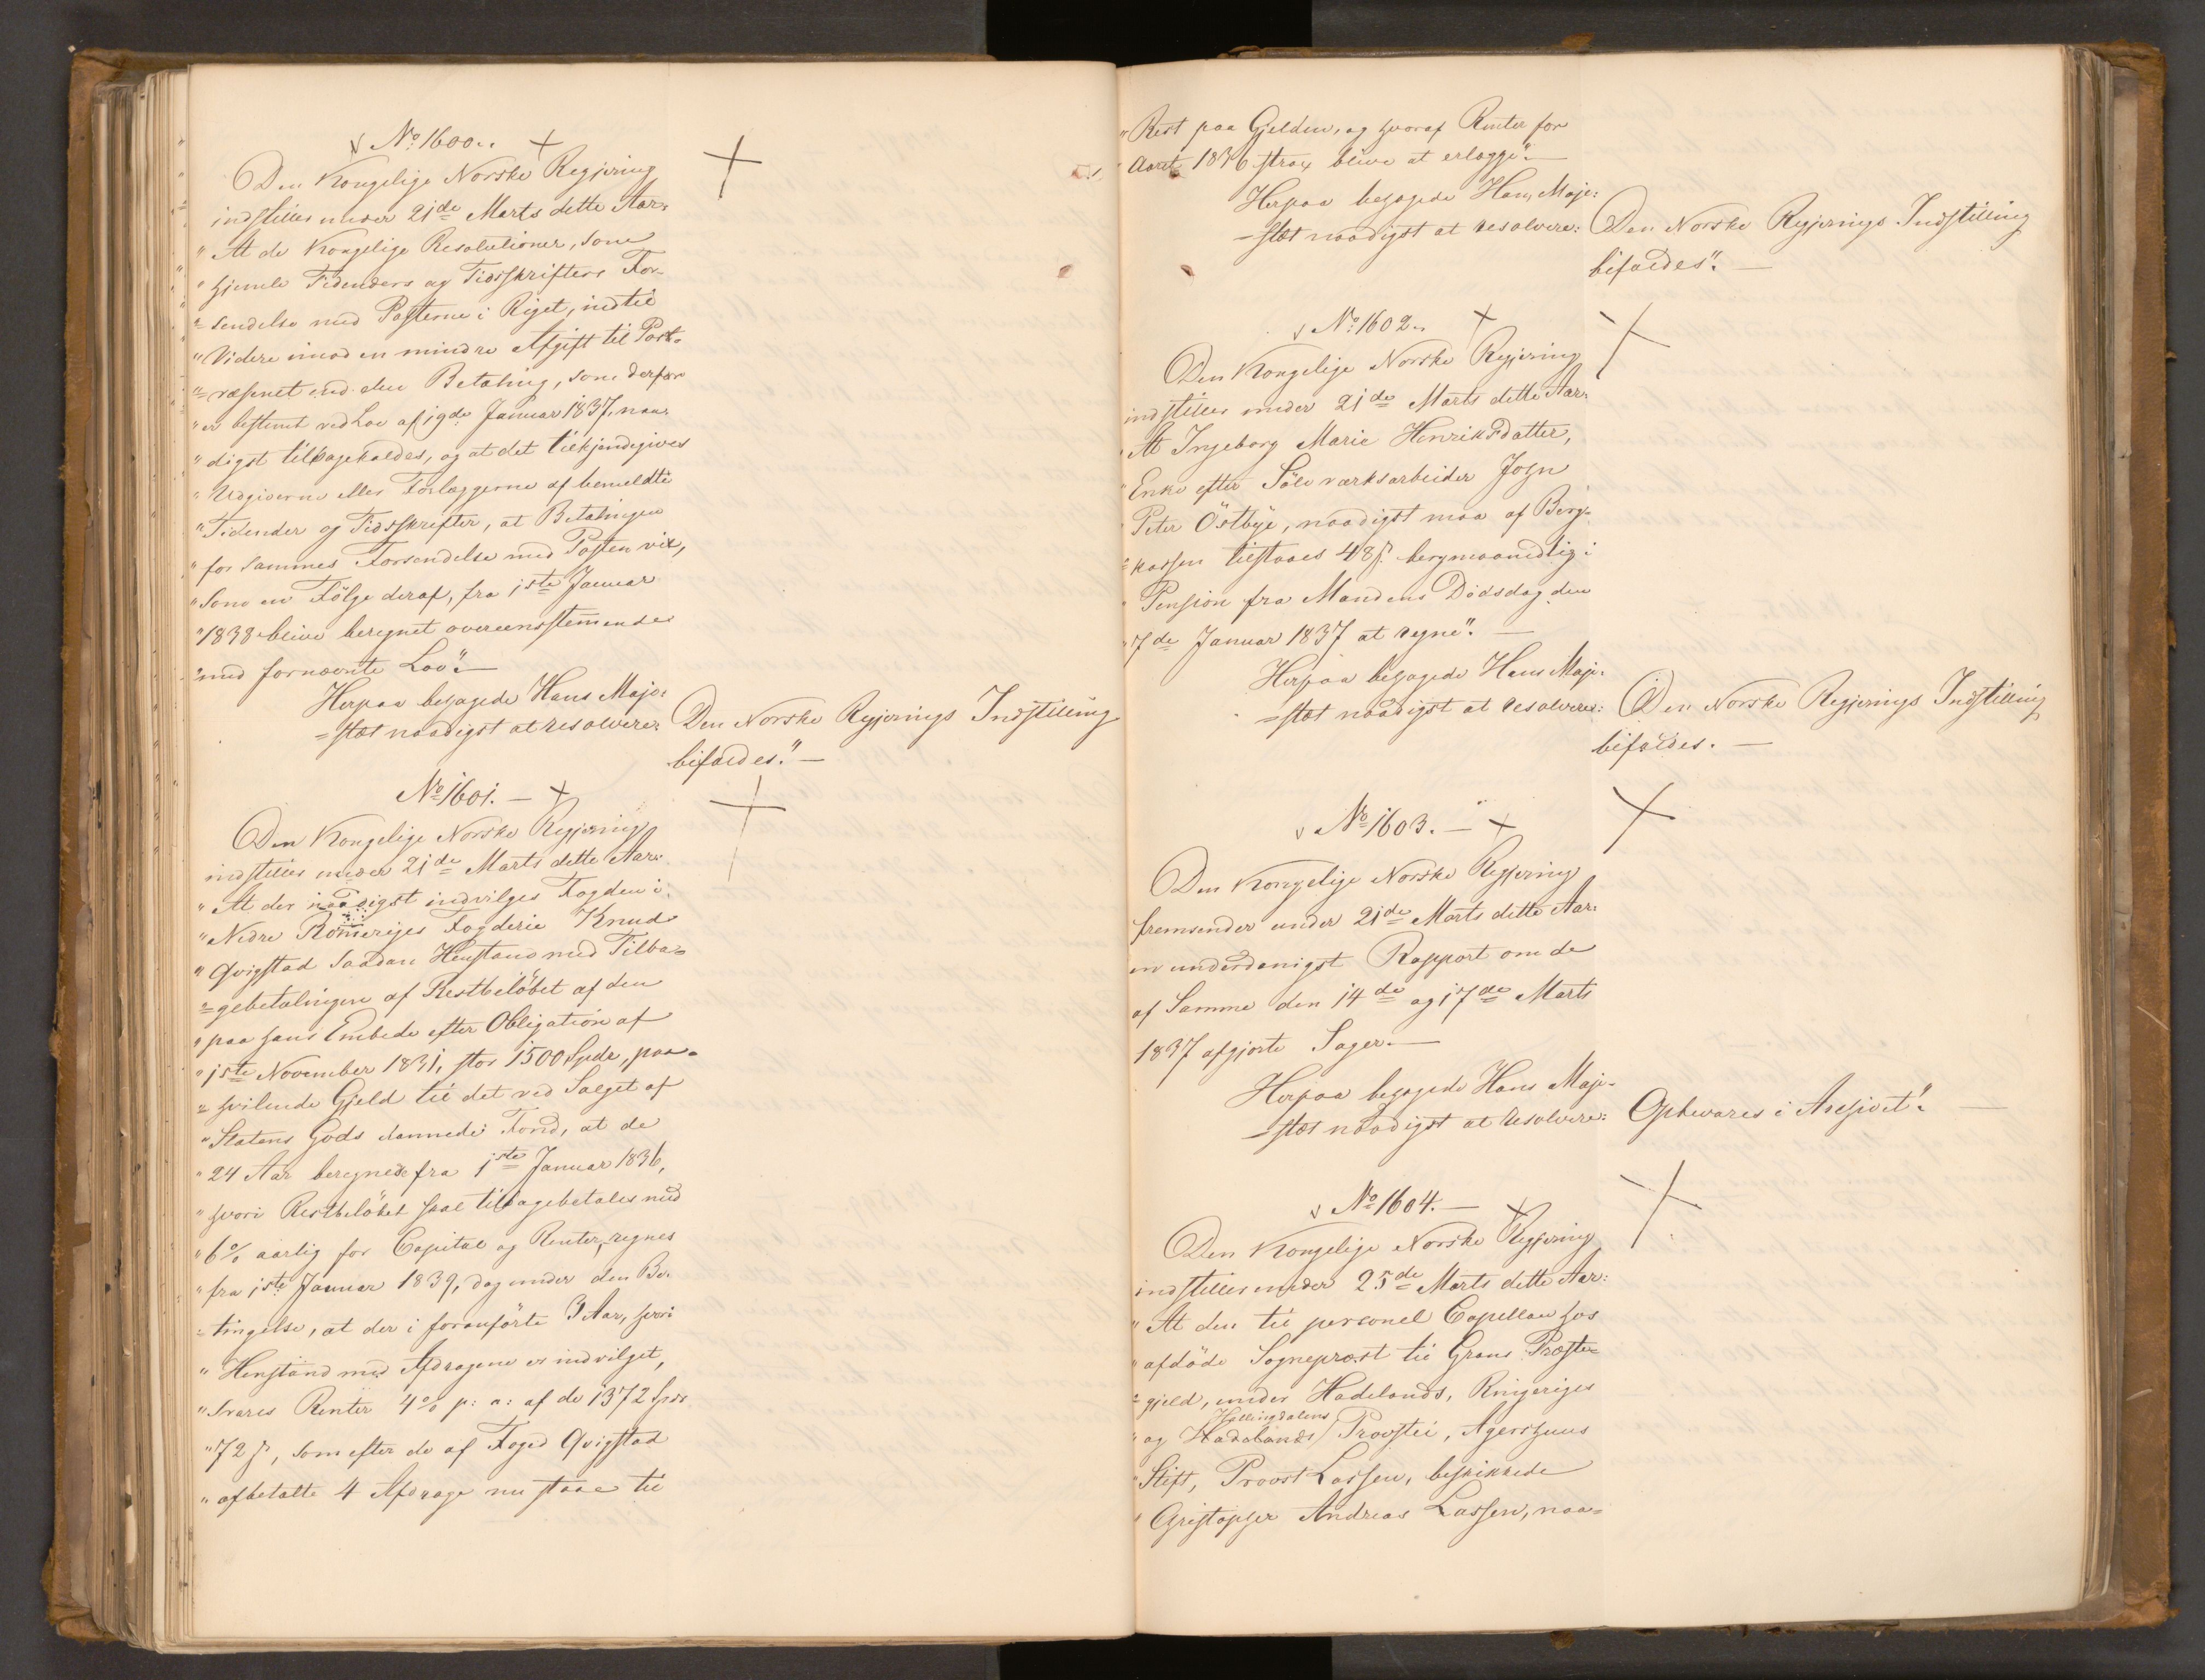 No 1600.
Den Kongelige Norske Regjering
indstiller under 21de Marts dette Aar:
"At de Kongelige Resolutioner, som
"hjemle Tidenders og Tidsskrifters For-
"sendelse med Posterne i Riget, indtil
"Videre imod en mindre Afgift til Post-
"væsenet end den Betaling, som derfor
"er bestemt ved Lov af 19de Januar 1837, naa-
"digst tilbagekaldes, og at det tilkjendegives
"Udgiverne eller Forlæggerne af bemeldte
"Tidender og Tidsskrifter, at Betalingen
"for sammes Forsendelse med Posten vil,
"som en Følge deraf, fra 1ste Januar
"1838 blive beregnet overeensstemmende
"med fornævnte Lov".—
Herpaa behagede Hans Maje-
=stæt naadigst at resolvere: Den Norske Regjerings Indstilling
bifaldes."—
No 1601.—
Den Kongelige Norske Regjering
indstiller under 21de Marts dette Aar:
"At der naadigst indvilges Fogden i
"Nedre Romeriges Fogderie Knud
"Qvigstad saadan Henstand med Tilba-
=gebetalingen af Restbeløbet af den
"paa hans Embede efter Obligation af
"1ste November 1831, stor 1500 Spdr, paa-
=hvilende Gjeld til det ved Salget af
"Statens Gods dannede Fond, at de
"24 Aar beregnede fra 1ste Januar 1836,
"hvori Restbeløbet skal tilbagebetales med
"6% aarlig for Capital og Renter, regnes
"fra 1ste Januar 1839, dog under den Be-
=tingelse, at der i foranførte 3 Aar, hvori
"Henstand med Afdragene er indvilget,
"svares Renter 4% p: a: af de 1372 Spdr
"72 ß, som efter de af Foged Qvigstad
"afbetalte 4 Afdrage nu staae til
"Rest paa Gjelden, og hvoraf Renter for
"Aaret 1836 strax blive at erlægge".—
Herpaa behagede Hans Maje-
=stæt naadigst at resolvere: Den Norske Regjerings Indstilling
bifaldes".—
No 1602.
Den Kongelige Norske Regjering
indstiller under 21de Marts dette Aar:
"At Ingeborg Marie Henriksdatter,
"Enke efter Sølvværksarbeider John
"Peter Östbye, naadigst maa af Berg-
=kassen tilstaaes 48 ß. bergmaanedlig i
"Pension fra Mandens Dødsdag den
"7de Januar 1837 at regne".—
Herpaa behagede Hans Maje-
=stæt naadigst at resolvere: Den Norske Regjerings Indstilling
bifaldes.—
No 1603.—
Den Kongelige Norske Regjering
fremsender under 21de Marts dette Aar:
en underdanigst Rapport om de
af Samme den 14de og 17de Marts
1837 afgjorte Sager.—
Herpaa behagede Hans Maje-
=stæt naadigst at resolvere: Opbevares i Archivet".—
No 1604.—
Den Kongelige Norske Regjering
indstiller under 25de Marts dette Aar:
"At den til personel Capellan hos
"afdøde Sognepræst til Grans Præste-
=gjeld, under Hadelands, Ringeriges
Hallingdalens
"og Hadelands Provstie, Agershuus
"Stift, Provst Lassen, beskikkede
"Christopher Andreas Lassen, naa-